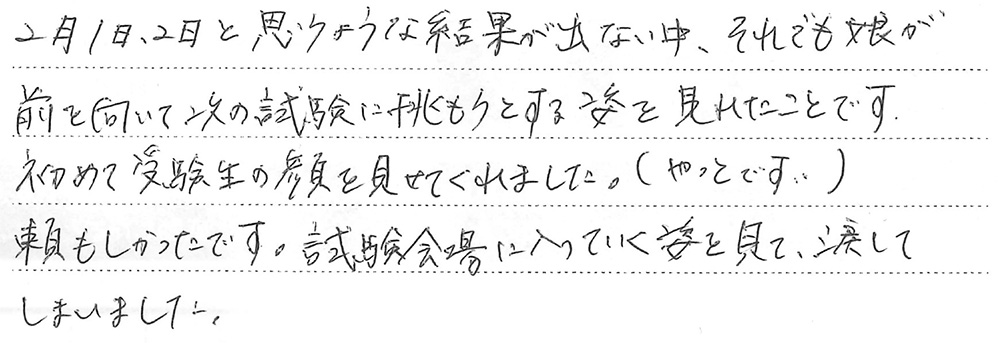 2月1日、2日と思うような結果が出ない中、それでも娘が
前を向いて次の試験に挑もうとする姿を見れたことです.
初めて受験生の顔を見せてくれました。(やっとです‥)
頼もしかったです。試験会場に入っていく姿を見て、涙して
しまいました。